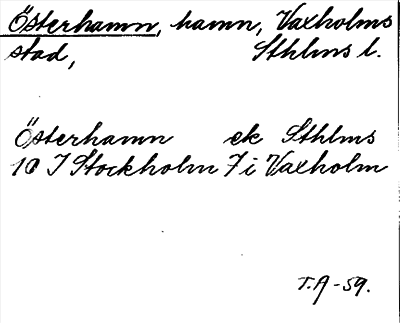 Österhamn, hamn, Vaxholms
stad, Sthlms l.
Österhamn ek Sthlms
10 I Stockholm 7 i Vaxholm
T.A-59.